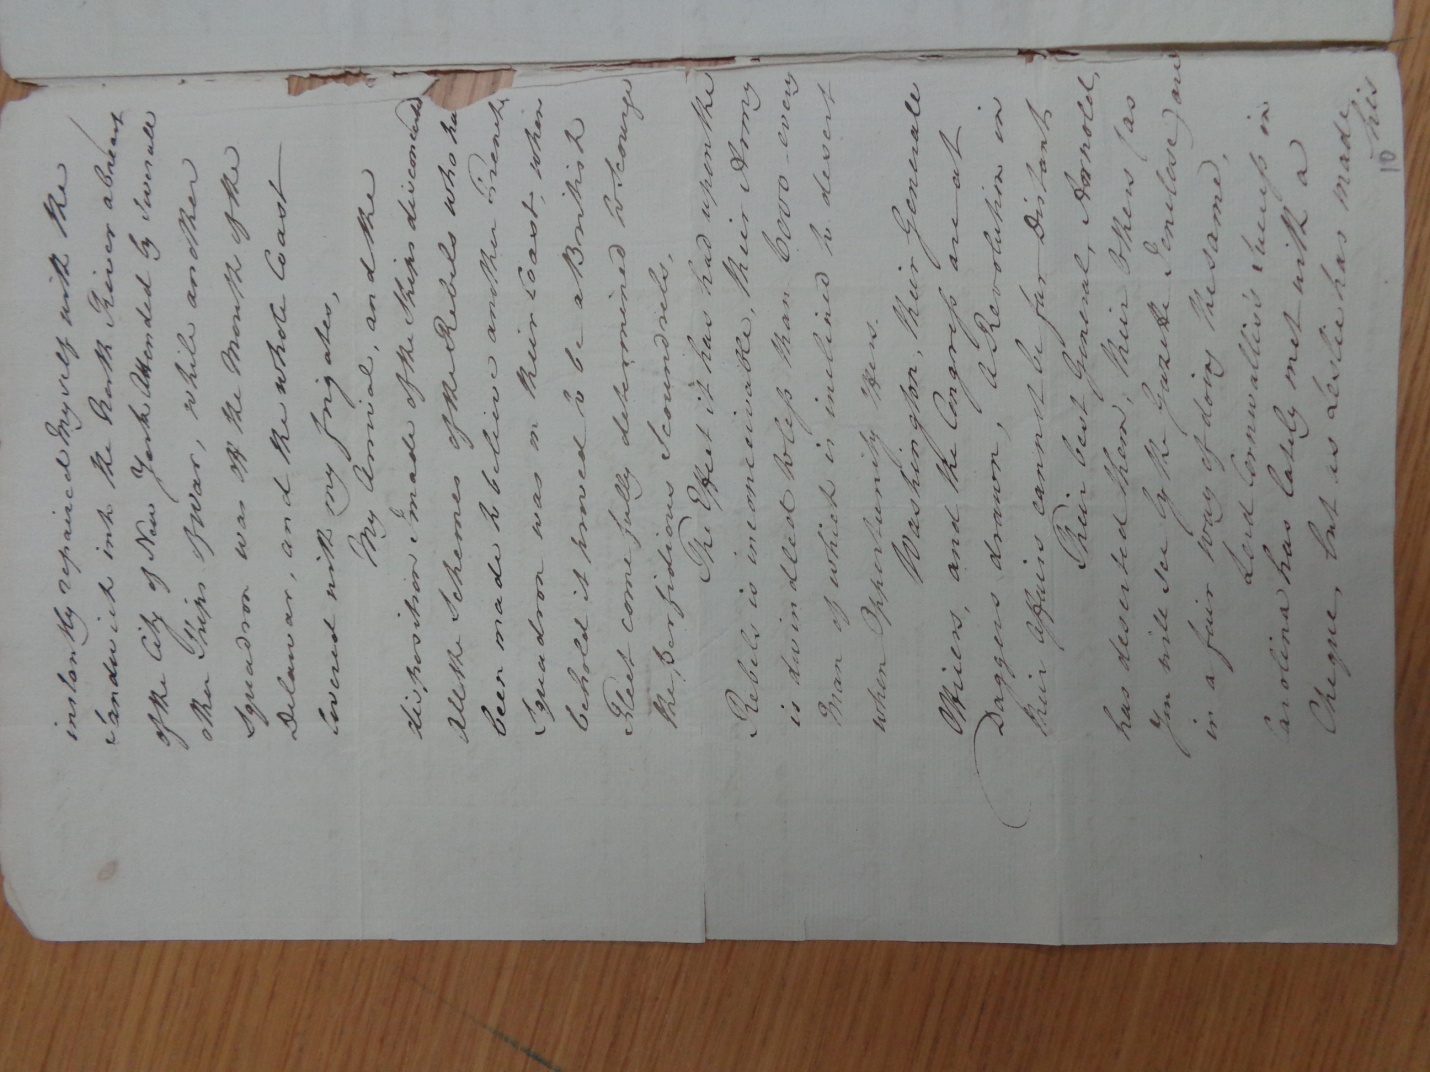 instantly repaired myself with the
Sandwich into the North River abreast
of the City of New York attended by several
other Ships of War, while another
Squadron was off the Mouth of the
Delawar, and the whole Coast
covered with my frigates,
My Arrival, and the
disposition I made of the Ships disconcerted
All the Schemes of the Rebels who had
been made to believe another French
Squadron was on their Coast, when
behold it proved to be a British
Fleet come fully determined to Scourge
the perfidious Scoundrels,
The Effect it has had upon the
Rebels is inconceivable, their Army
is dwindled to less than 6000 - every
Man of which is inclined to desert
when Opportunity offers.
Washington, their General
Officers, and the Congress are at
Daggers drawn, a Revolution in
their Affairs cannot be far Distant,
Their best General, Arnold,
has deserted them, their others (as
you will see by the Gazette Inclosed) are
in a fair way of doing the same,
Lord Cornwallis's Success in
Carolina has lately met with a
Cheque, but as Leslie has made
his
10